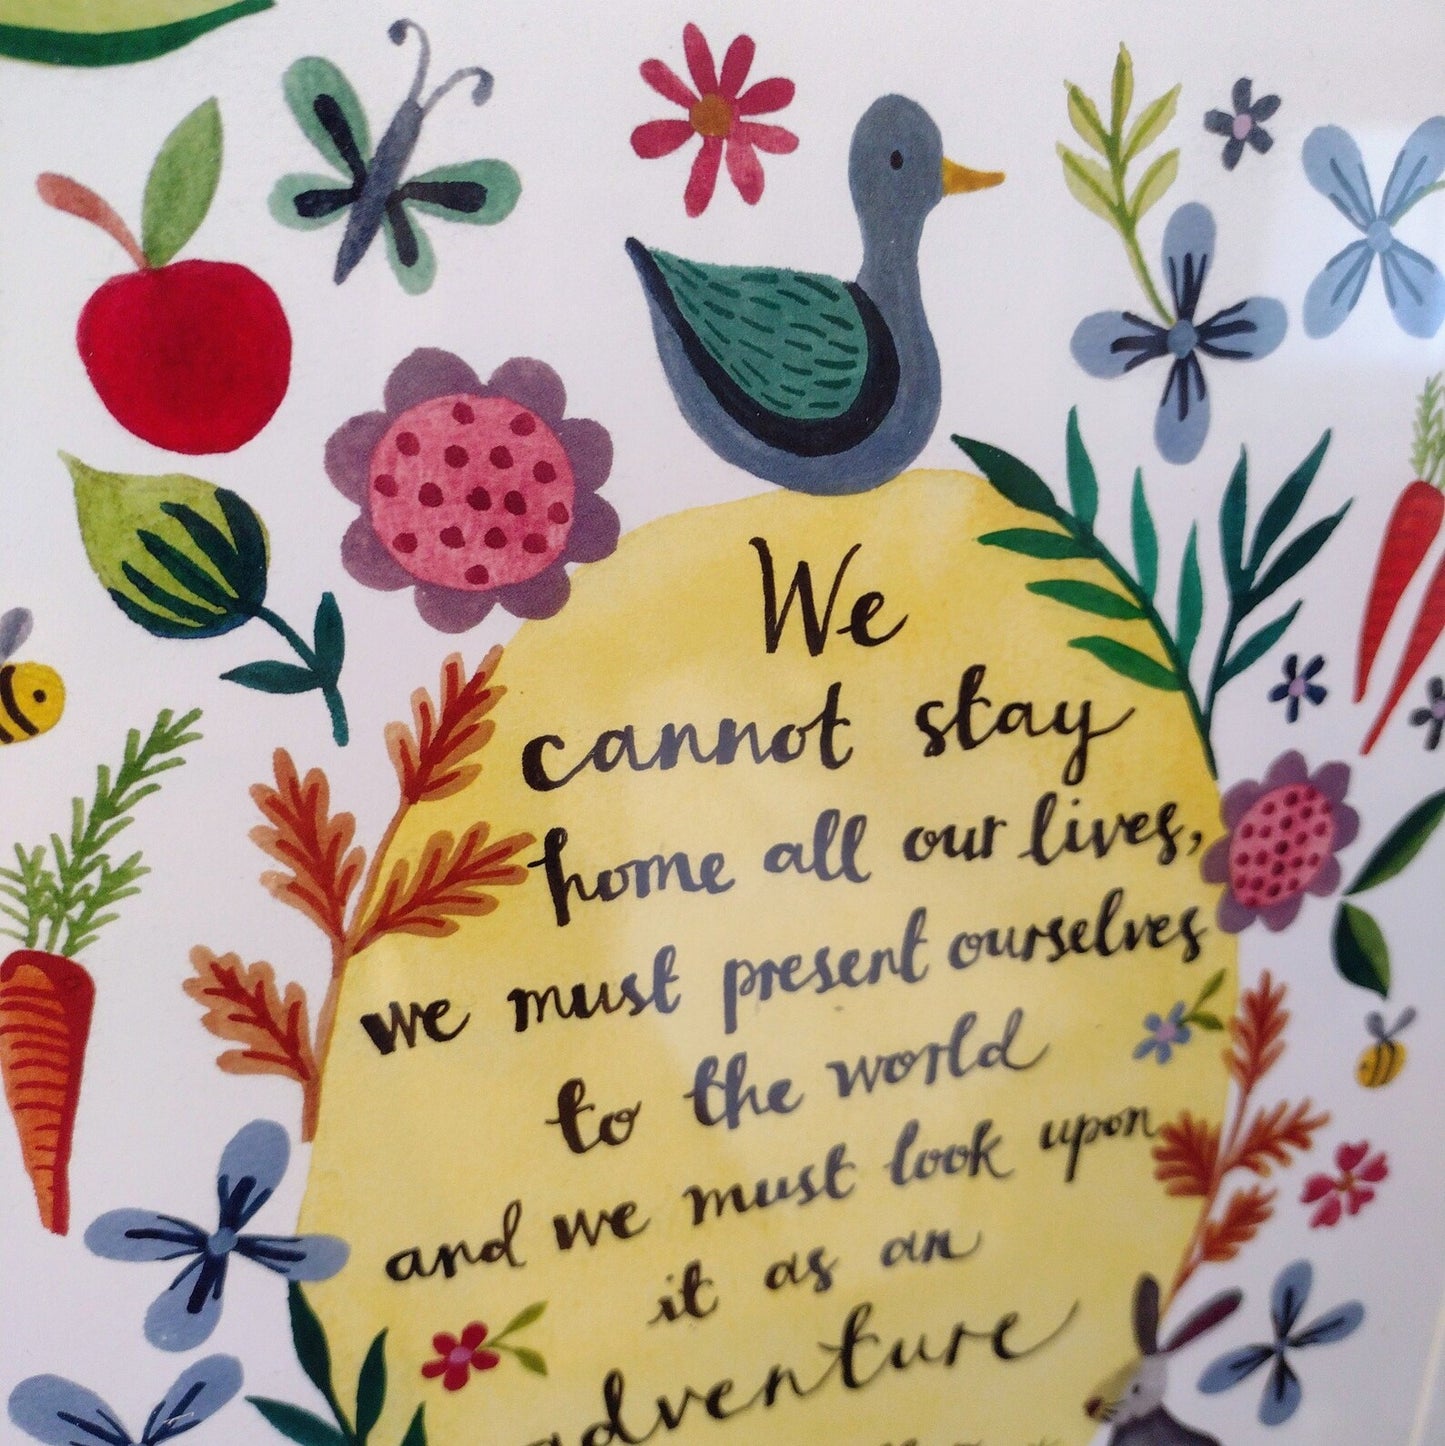 We
cannot stay
home all our lives,
we must present ourselves
to the world
and we must look upon
it as an
adventure